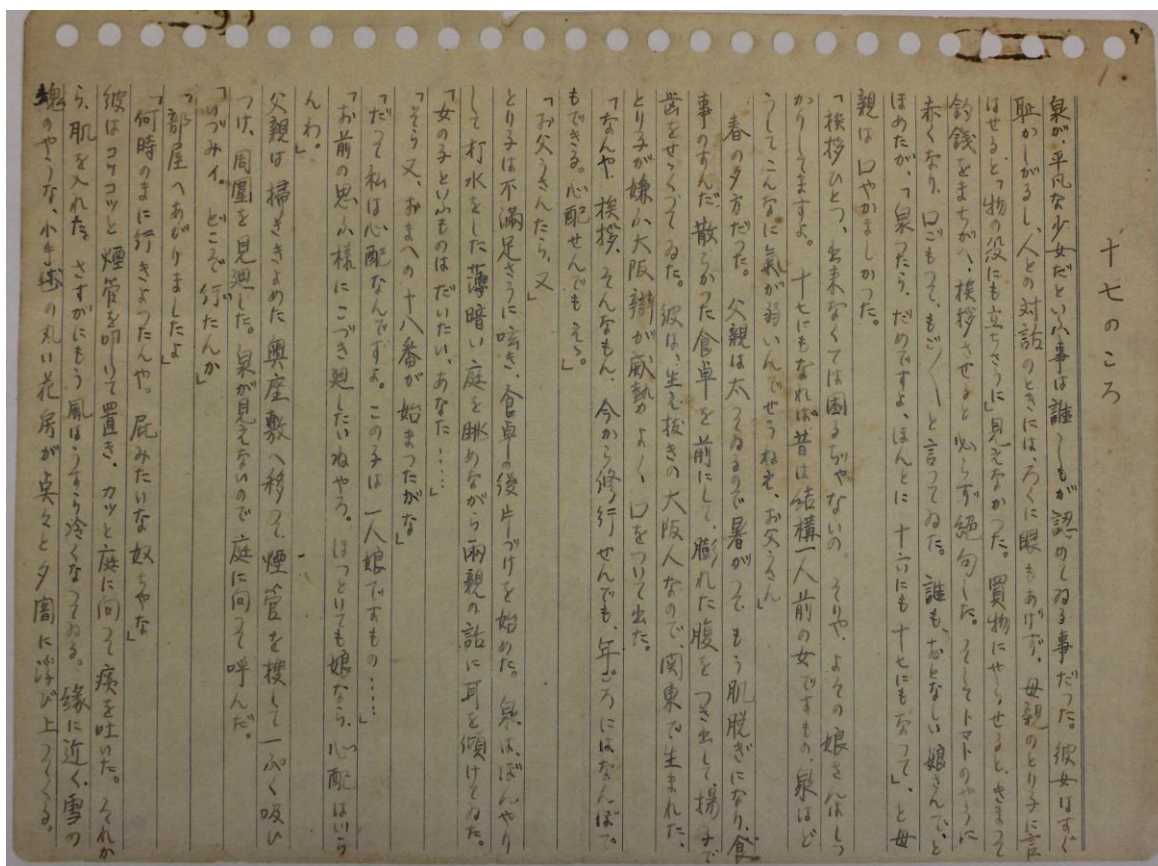 十七のころ
泉が、平凡な少女だといふ事は誰しもが認めてゐる事だつた。彼女はすぐ
恥かしがるし、人との対話のときには、ろくに眼もあげず、母親のとり子に言
はせると「物の役にも立ちさうに」見えなかつた。買物にやらせると、きまつて
釣銭をまちがへ、挨拶させると必らず絶句した。そしてトマトのやうに
赤くなり、口ごもつて、もご〳〵と言つてゐた。誰も、おとなしい娘さんで、と
ほめたが、「泉つたら、だめですよ、ほんとに十六にも十七にもなつて」、と母
親は口やかましかつた。
「挨拶ひとつ、出来なくては困るぢやないの。そりや、よその娘さんはしつ
かりしてますよ。十七にもなれば昔は結構一人前の女ですもの、泉はど
うしてこんなに氣が弱いんでせうねえ、お父うさん」
春の夕方だつた。父親は太つてゐるので暑がつて、もう肌脱ぎになり、食
事のすんだ、散らかつた食卓を前にして、膨れた腹をつき出して、揚子で
歯をせゝくつてゐた。彼は、生え抜きの大阪人なので、関東で生まれた、
とり子が嫌ふ大阪辯が威勢よく、口をついて出た。
「なんや、挨拶、そんなもん、今から修行せんでも、年ごろにはなんぼで
もできる。心配せんでもえゝ。」
「お父うさんたら、又」
とり子は不満足さうに呟き、食卓の後片づけを始めた。泉は、ぼんやり
して打水をした薄暗い庭を眺めながら両親の話に耳を傾けてゐた。
「女の子といふものはだいたい、あなた……」
「そら又、おまへの十八番が始まつたがな」
「だつて私は心配なんですよ。この子は一人娘ですもの……」
「お前の思ふ様にこづき廻したいねやろ。ほつとりても娘なら、心配はいら
んわ。」
父親は掃ききよめた奥座敷へ移つて、煙管を捜して一ぷく吸ひ
つけ、周圍を見廻した。泉が見えないので庭に向つて呼んだ。
「いづみィ。どこで行たんか」
「部屋へあがりましたよ」
「何時のまに行きよつたんや。屁みたいな奴ちやな」
彼はコツコツと煙管を叩いて置き、カツと庭に向つて痰を吐いた。それか
ら、肌を入れた。さすがにもう風はうすら冷くなつてゐる。縁に近く、雪の
塊のやうな、小手毬の丸い花房が点々と夕闇に浮び上つてくる。